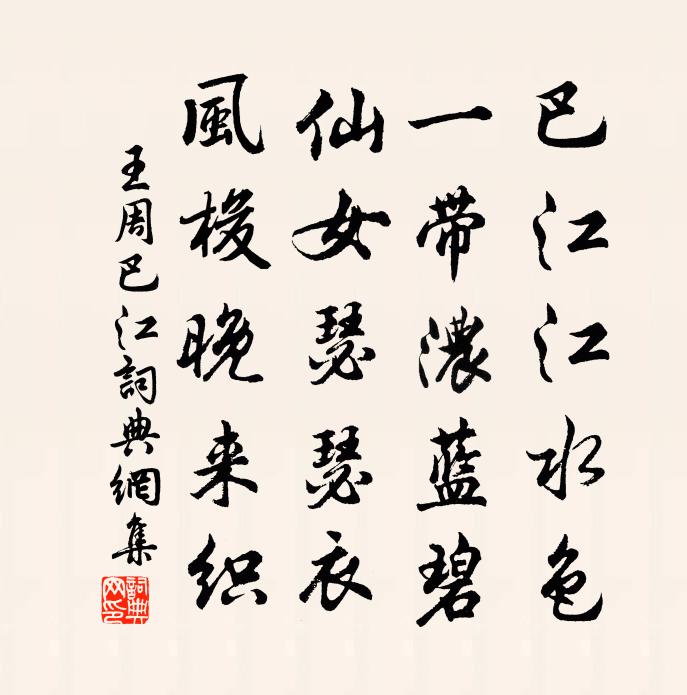 巴江江水色
一帶濃藍碧
仙女瑟瑟衣
風梭晚来织
王周巴江詞典網集
詞典网印